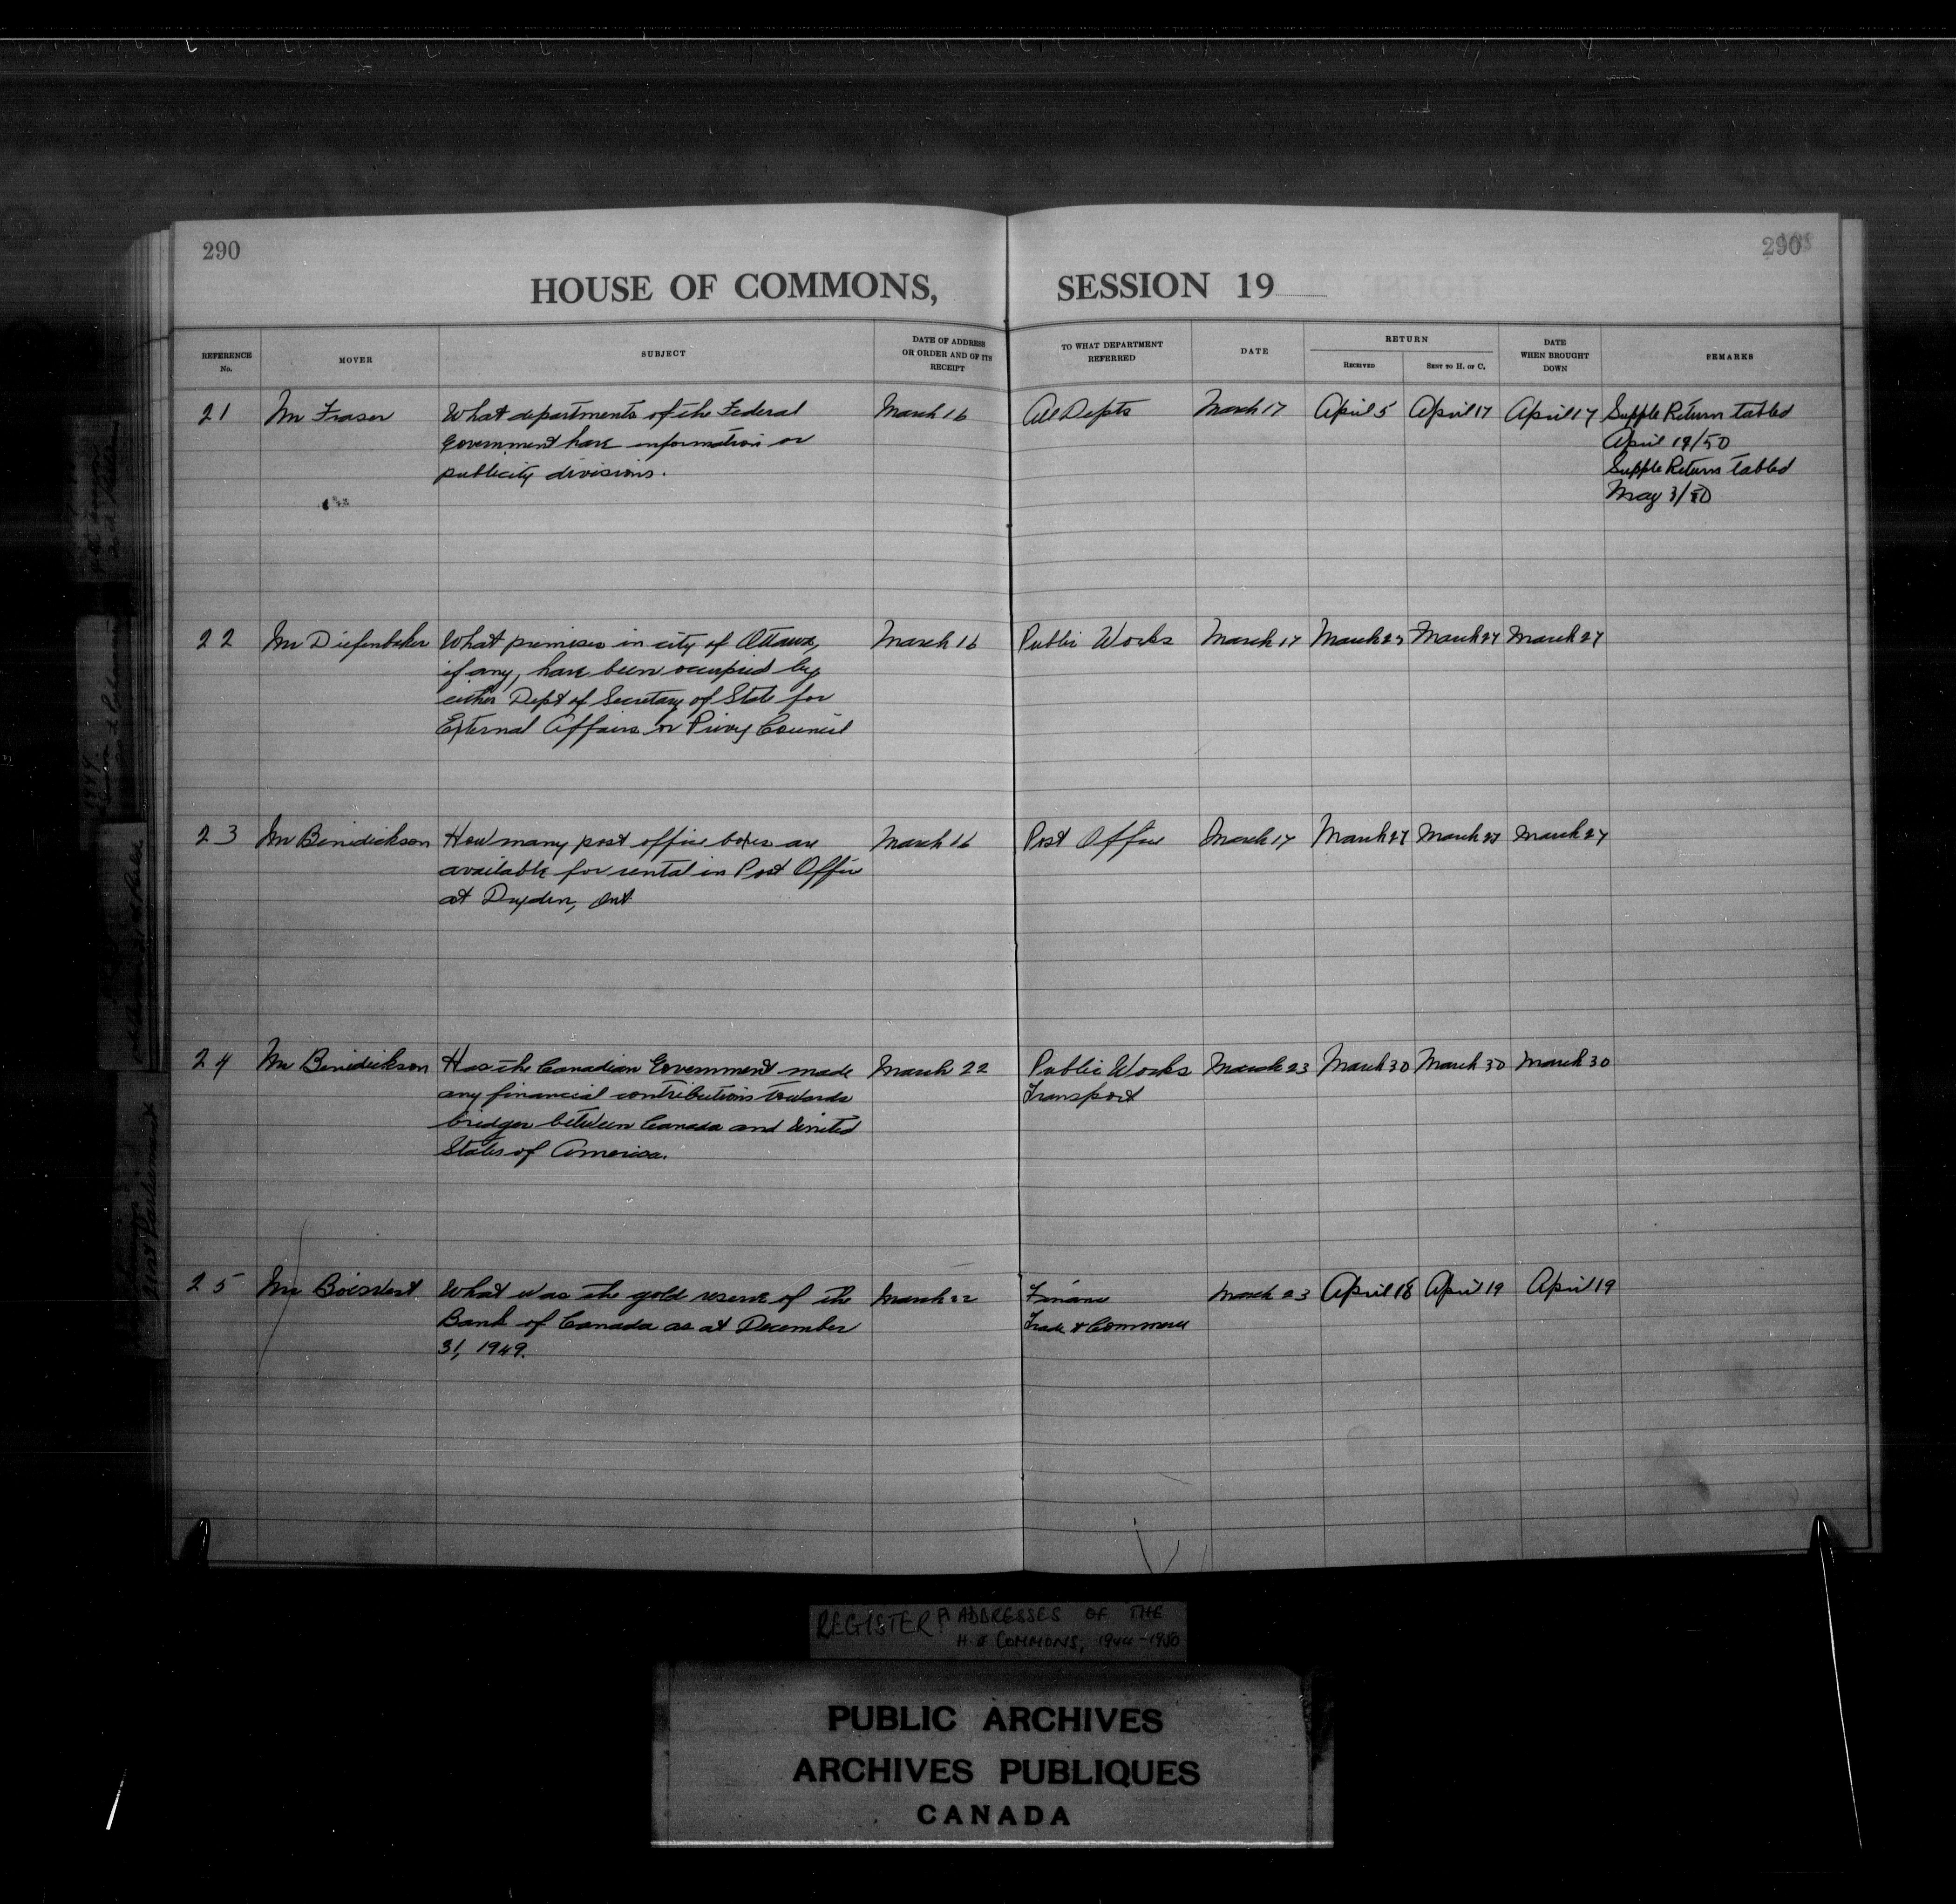 290
290
HOUSE OF COMMONS, SESSION 19
REFERENCE No.
MOVER
SUBJECT
DATE OF ADDRESS OR ORDER AND OF ITS RECEIPT
TO WHAT DEPARTMENT REFERRED
DATE
RETURN
RECEIVED
SENT TO H. OF C.
DATE WHEN BROUGHT DOWN
REMARKS
21 Mr Fraser What departments of the Federal March 16 All Depts March 17 April 5 April 17 April 17 Supple Return tabled
Government have information or April 19/50
publicity divisions. Supple Return tabled
May 3/50
22 Mr Diefenbaker What premises in city of Ottawa, March 16 Public Works March 17 March 27 March 27 March 27
if any, have been occupied by
either Dept of Secretary of State for
External Affairs or Privy Council
23 Mr Benidickson How many post office boxes are March 16 Post Office March 17 March 27 March 27 March 27
available for rental in Post Office
at Dryden, Ont
24 Mr Benidickson Has the Canadian Government made March 22 Public Works March 23 March 30 March 30 March 30
any financial contributions towards Transport
bridges between Canada and United
States of America.
25 Mr Boisvert What was the gold reserve of the March 22 Finance March 23 April 18 April 19 April 19
Bank of Canada as at December Trade & Commerce
31, 1949.
21st Parliament
REGISTER OF ADDRESSES OF THE
H. OF COMMONS, 1944-1950
PUBLIC ARCHIVES
ARCHIVES PUBLIQUES
CANADA